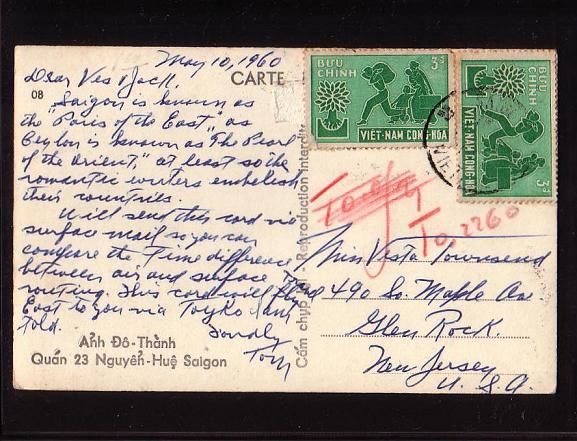 May 10, 1960
Dear Ves & Jack,
Saigon is known as
the "Paris of the East," as
Ceylon is known as "The Pearl
of the Orient," at least so the
romantic writers embelish
their countries.
Will send this card via
surface mail so you can
compare the Time difference
between air and surface
routing. This card will
East to you via Toyko I am
told.
Fondly
Tom
08
CARTE
Ảnh Đô-Thành
Quán 23 Nguyễn-Huệ Saigon
Cấm chụp lại - Reproduction interdite
BƯU CHÍNH
3đ
VIỆT-NAM CỘNG-HÒA
BƯU CHÍNH
3đ
VIỆT-NAM CỘNG-HÒA
VIET
T 0,2260
Miss Vesta Townsend
490 So. Maple Ave
Glen Rock.
New Jersey
U. S. A.